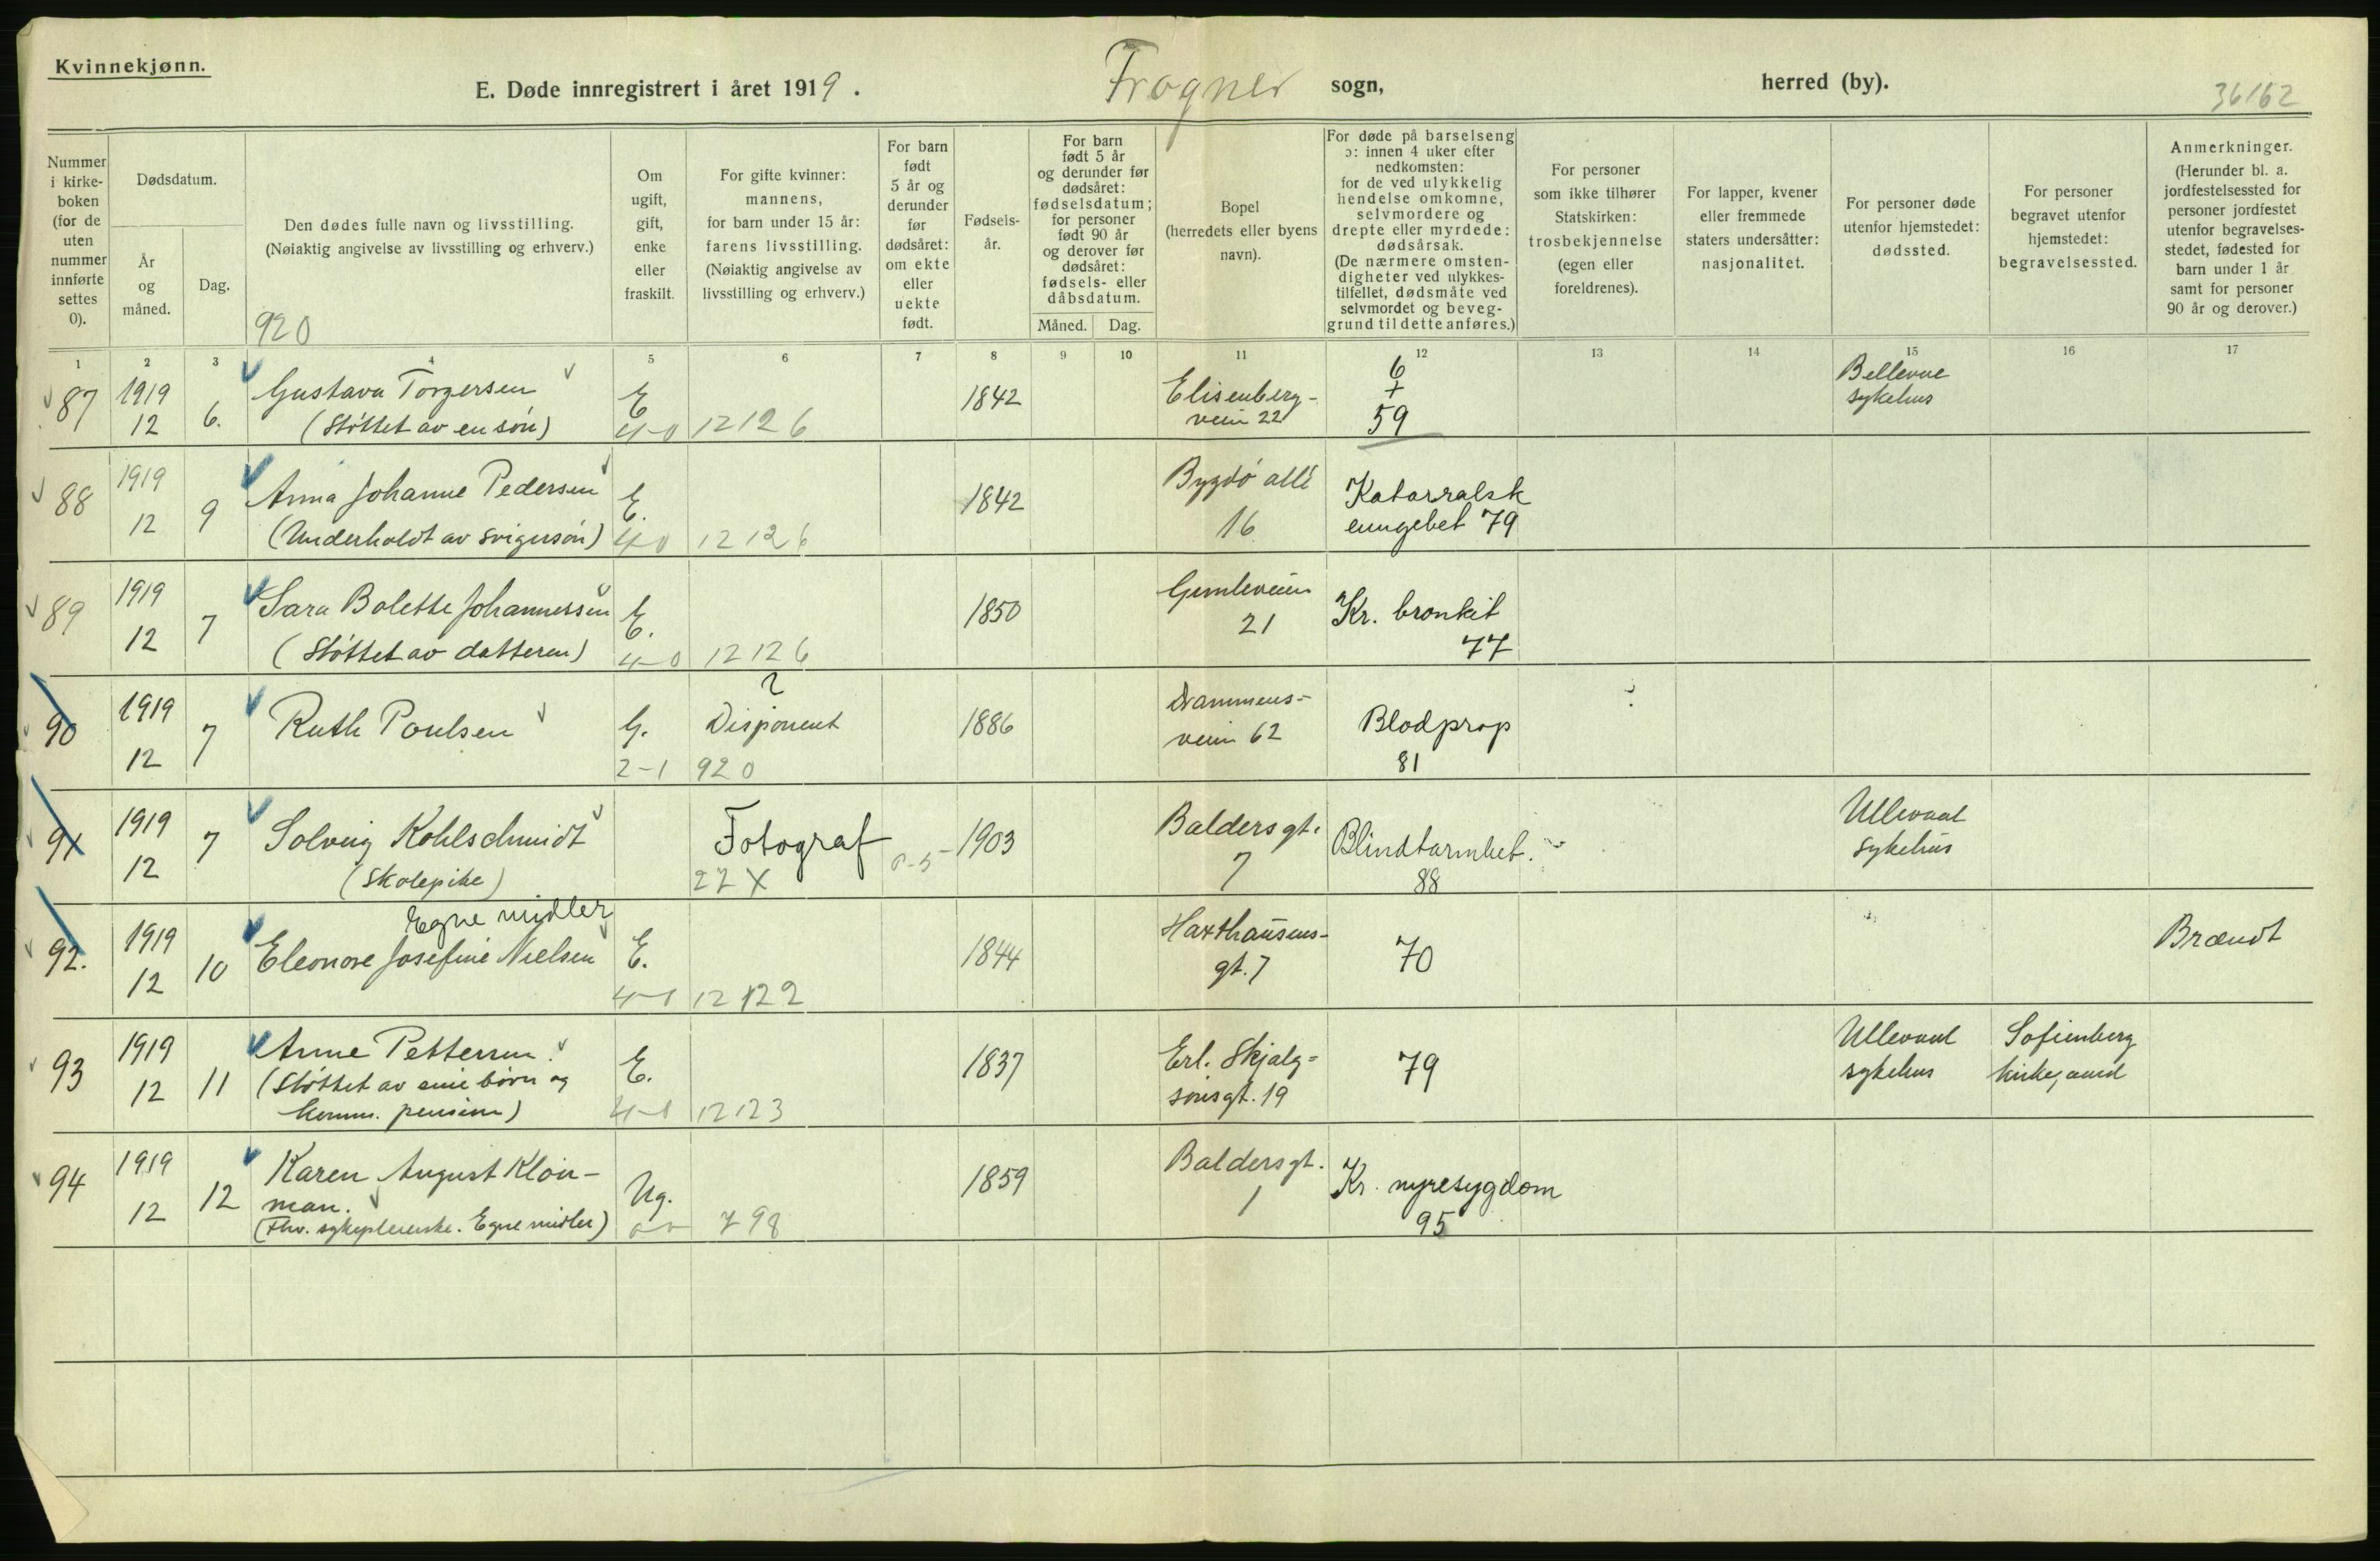 Kvinnekjønn.
E. Døde innregistrert i året 1919. Frogner sogn, herred (by). 36162
Nummer i kirke-boken (for de uten nummer innførte settes 0).
Dødsdatum.
År og måned.
Dag.
Den dødes fulle navn og livsstilling.
(Nøiaktig angivelse av livsstilling og erhverv.)
920
Om ugift, gift, enke eller fraskilt.
For gifte kvinner: mannens, for barn under 15 år: farens livsstilling. (Nøiaktig angivelse av livsstilling og erhverv.)
For barn født 5 år og derunder før dødsåret: om ekte eller uekte født.
Fødsels-år.
For barn født 5 år og derunder før dødsåret: fødselsdatum; for personer født 90 år og derover før dødsåret: fødsels- eller dåbsdatum.
Måned. Dag.
Bopel (herredets eller byens navn).
For døde på barselseng ɔ: innen 4 uker efter nedkomsten: for de ved ulykkelig hendelse omkomne, selvmordere og drepte eller myrdede: dødsårsak. (De nærmere omsten-digheter ved ulykkes-tilfellet, dødsmåte ved selvmordet og beveg-grund til dette anføres.)
For personer som ikke tilhører Statskirken: trosbekjennelse (egen eller foreldrenes).
For lapper, kvener eller fremmede staters undersåtter: nasjonalitet.
For personer døde utenfor hjemstedet: dødssted.
For personer begravet utenfor hjemstedet: begravelsessted.
Anmerkninger. (Herunder bl. a. jordfestelsessted for personer jordfestet utenfor begravelses-stedet, fødested for barn under 1 år samt for personer 90 år og derover.)
1 2 3 4 5 6 7 8 9 10 11 12 13 14 15 16 17
87 1919 12 6. Gustava Torgersen E 1842 Elisenberg- 6 + Bellevue
(Støttet av en søn) 4-0 12 12 6 veien 22 59 sykehus
88 1919 12 9 Anna Johanne Pedersen E. 1842 Bygdö allé Katarralsk
(Underholdt av svigersøn) 4-0 12 12 6 16 lungebet 79
89 1919 12 7 Sara Bolette Johannessen E. 1850 Gimleveien Kr. bronkit
(Støttet av datteren) 4-0 12 12 6 21 77
90 1919 12 7 Ruth Poulsen G. ? Disponent 1886 Drammens- Blodprop
2-1 920 veien 62 81
91 1919 12 7 Solveig Kohlschmidt Fotograf 1903 Baldersgt. Blindtarmbet. Ullevaal
(Skolepike) 27 X 7 88 sykehus
Egne midler
92. 1919 12 10 Eleonore Josefine Nielsen E. 1844 Haxthausens- 70 Brændt
4-1 12 122 gt. 7
93 1919 12 11 Anne Pettersen. E. 1837 Erl. Skjalg- 79 Ullevaal Sofienberg
(Støttet av sine børn og sønsgt. 19 sykehus kirkegaard
komm. pension) 4-1 12 123
94 1919 12 12 Karen August Klou- Ug. 1859 Baldersgt. Kr. nyresygdom
man. 1 95
(Fhv. sykepleierske. Egne midler) 798